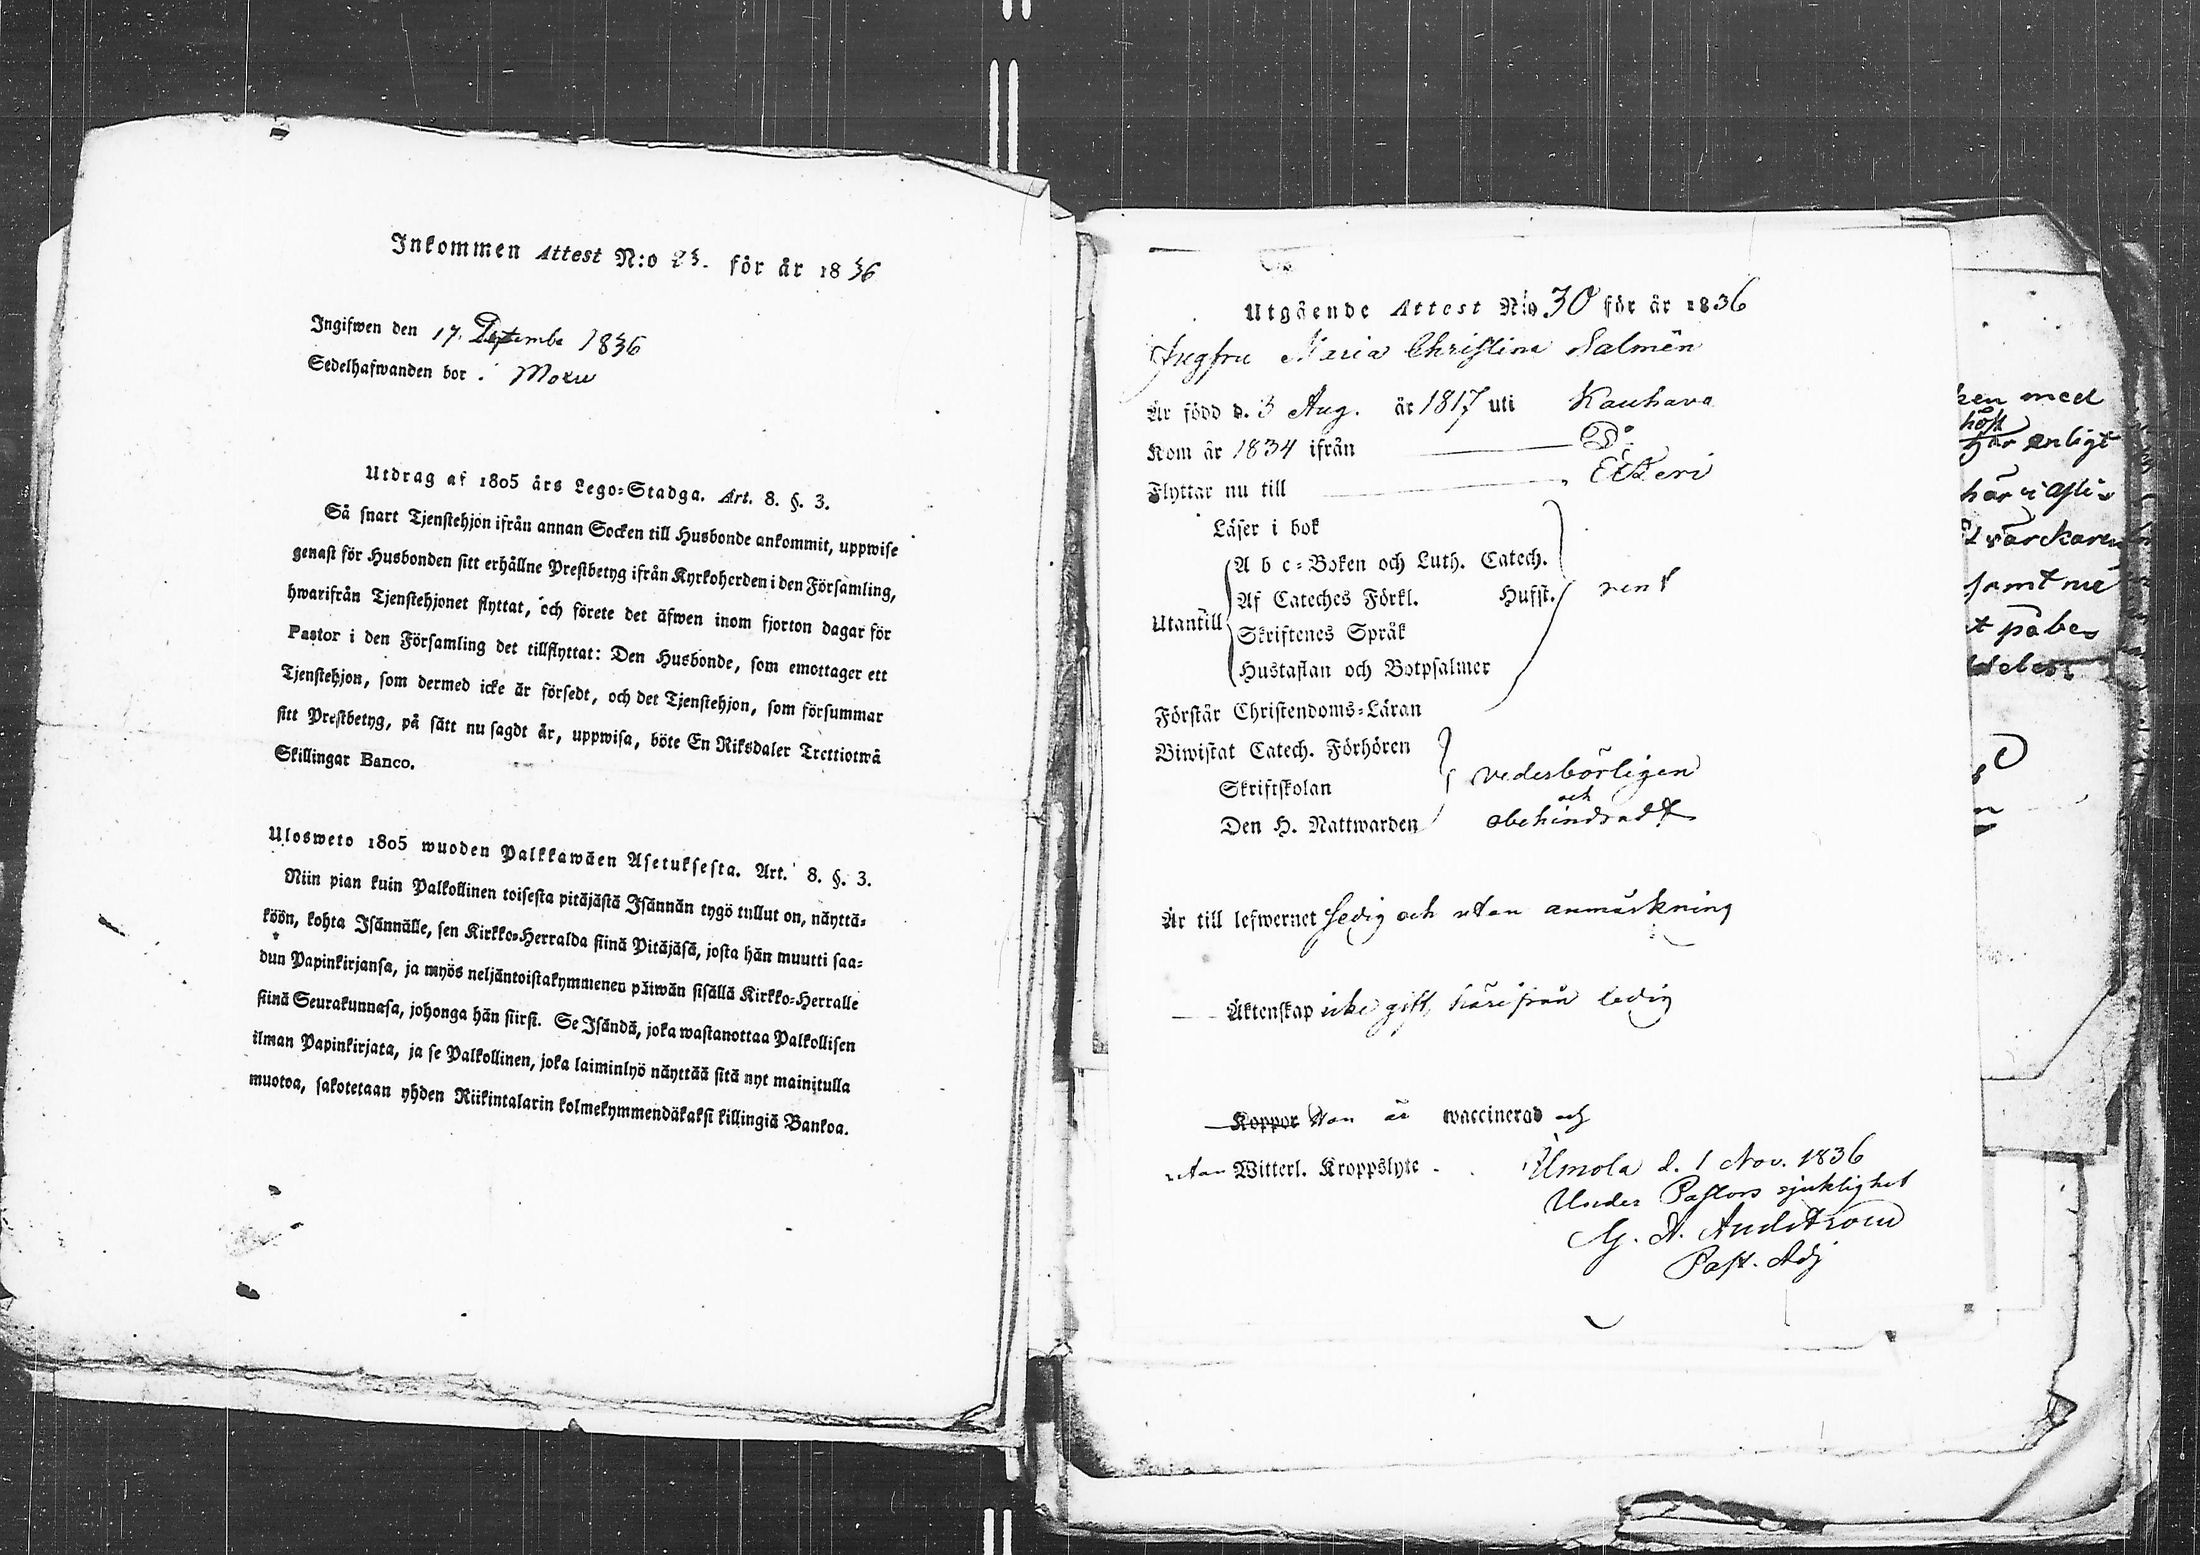 Inkommen Attest N:o 23. för år 1836
Ingifwen den 17. Decembe 1836
Sedelhafwanden bor i Moxu
Utdrag af 1805 års Lego-Stadga. Art. 8. §. 3.
Så snart Tjenstehjon ifrån annan Socken till Husbonde ankommit, uppwise
genast för Husbonden sitt erhållne Prestbetyg ifrån Kyrkoherden i den Församling,
hwarifrån Tjenstehjonet flyttat, och förete det äfwen inom fjorton dagar för
Pastor i den Församling det tillflyttat: Den Husbonde, som emottager ett
Tjenstehjon, som dermed icke är försedt, och det Tjenstehjon, som försummar
sitt Prestbetyg, på sätt nu sagdt är, uppwisa, böte En Riksdaler Trettiotwå
Skillingar Banco.
Ulosweto 1805 wuoden Palkkawäen Asetuksesta. Art. 8. §. 3.
Niin pian kuin Palkollinen toisesta pitäjästä Isännän tygö tullut on, näyttä-
köön, kohta Isännälle, sen Kirkko-Herralda siinä Pitäjäsä, josta hän muutti saa-
dun Papinkirjansa, ja myös neljäntoistakymmenen päiwän sisällä Kirkko-Herralle
siinä Seurakunnasa, johonga hän siirsi. Se Isändä, joka wastanottaa Palkollisen
ilman Papinkirjata, ja se Palkollinen, joka laiminlyö näyttää sitä nyt mainitulla
muotoa, sakotetaan yhden Riikintalarin kolmekymmendäkaksi killingiä Bankoa.
Utgående Attest N:o 30 för år 1836
Jugfru Maria Christina Salmén
Är född d. 3 Aug. år 1817 uti Kauhava
Kom år 1834 ifrån D:o
Flyttar nu till Etseri
Läser i bok
A b c-Boken och Luth. Catech.
Af Cateches Förkl. Hufst. rent
Utantill
Skriftenes Språk
Hustaflan och Botpsalmer
Förstår Christendoms-Läran
Biwistat Catech. Förhören
Skriftskolan vederbörligen
och
Den H. Nattwarden obehindradt
Är till lefwernet ledig och utan anmärkning
Äktenskap icke gift, härifrån ledig
Koppor Hon är waccinerad och
utan Witterl. Kroppslyte.
d. 1 Nov. 1836
Under Pastors sjuklighet
Past. Adj
ken med
höst
här enligt
samt me
t påbe